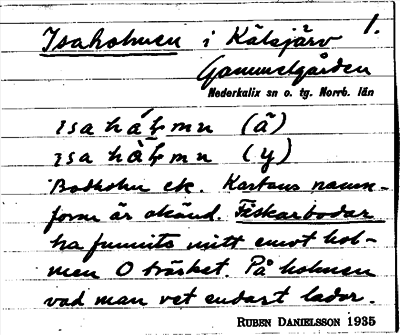 1.
Isaholmen i Kälsjärv
Gammelgården
Nederkalix sn o. tg. Norrb. län
isa hål̄mn (ä)
isa hàl̄mn (y)
Bodholm ek. Kartans namn-
form är okänd. Fiskarbodar
ha funnits mitt emot hol-
men O träsket. På holmen
vad man vet endast lador.
RUBEN DANIELSSON 1935